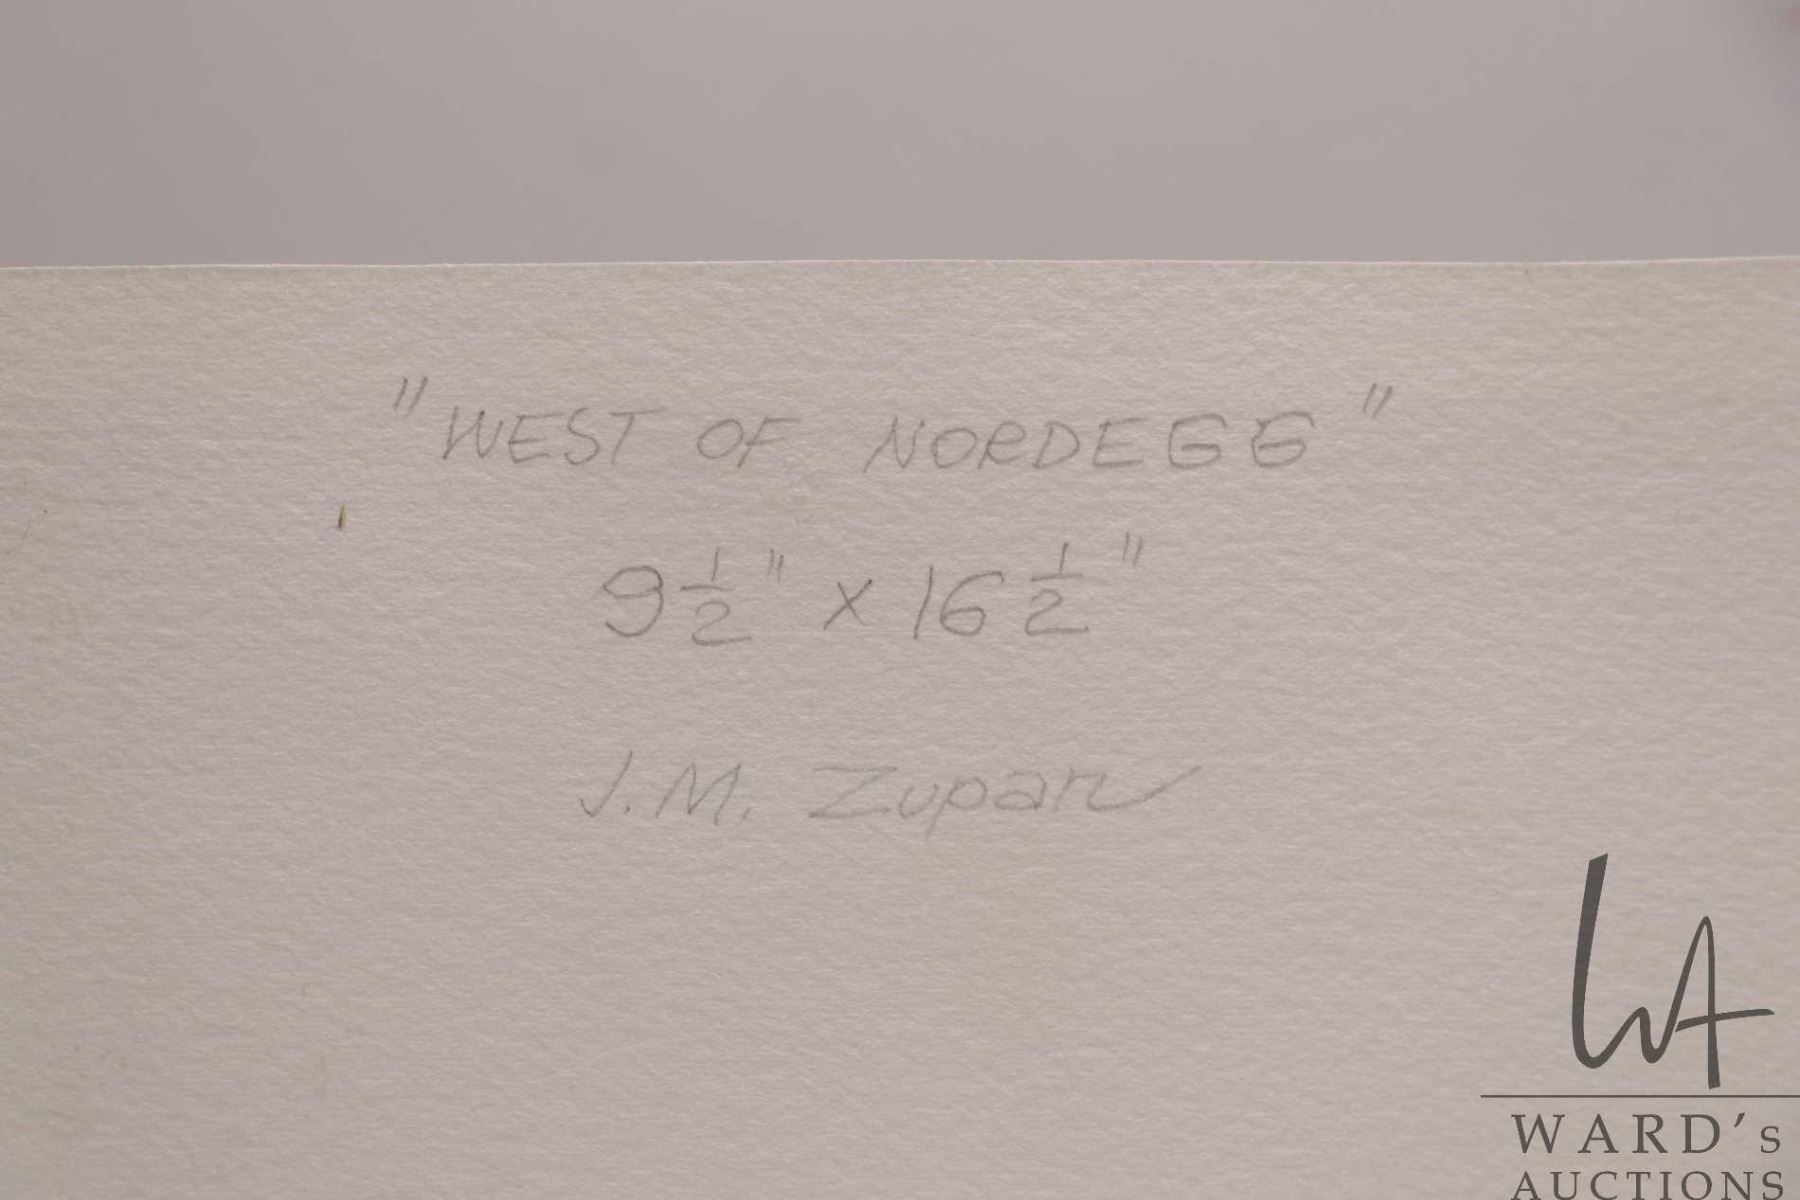 "WEST OF NORDEGG"
9 1/2" x 16 1/2"
J.M. Zupan
WA
WARD's
AUCTIONS